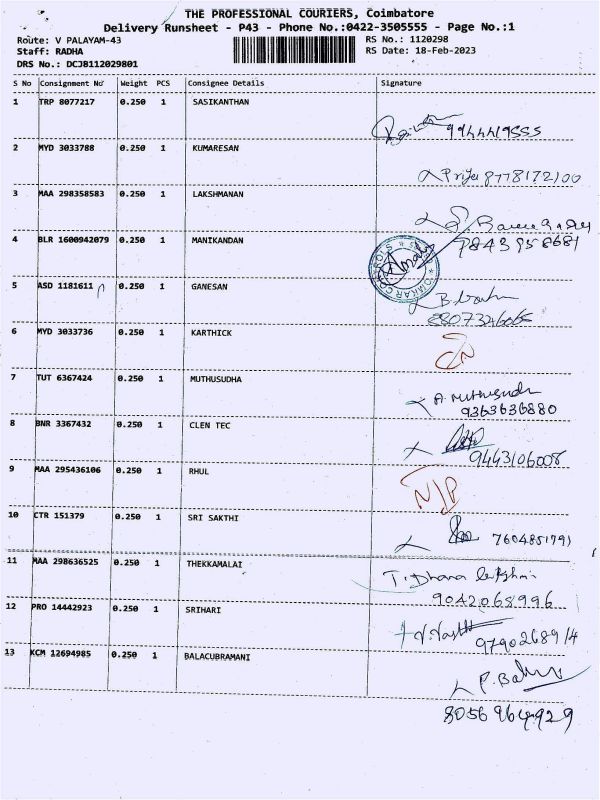 THE PROFESSIONAL COURIERS, Coimbatore
Delivery Runsheet - P43 - Phone No.:0422-3505555 - Page No.:1
Route: V PALAYAM-43 RS No.: 1120298
Staff: RADHA RS Date: 18-Feb-2023
DRS No.: DCJ8112029801
S No Consignment No Weight PCS Consignee Details Signature
1 TRP 8077217 0.250 1 SASIKANTHAN
9944419555
2 MYD 3033788 0.250 1 KUMARESAN
Priya 8778172100
3 MAA 298358583 0.250 1 LAKSHMANAN
4 BLR 1600942079 0.250 1 MANIKANDAN 9843958681
5 ASD 1181611 0.250 1 GANESAN
8807326065
6 MYD 3033736 0.250 1 KARTHICK
7 TUT 6367424 0.250 1 MUTHUSUDHA
A. Muthusudha
9363636880
8 BNR 3367432 0.250 1 CLEN TEC
9443106008
9 MAA 295436106 0.250 1 RHUL
N/P
10 CTR 151379 0.250 1 SRI SAKTHI
7604851791
11 MAA 298636525 0.250 1 THEKKAMALAI
T. Dhana lakshmi
9042068996
12 PRO 14442923 0.250 1 SRIHARI
9790268914
13 KCM 12694985 0.250 1 BALACUBRAMANI
P. Balu
8056964929